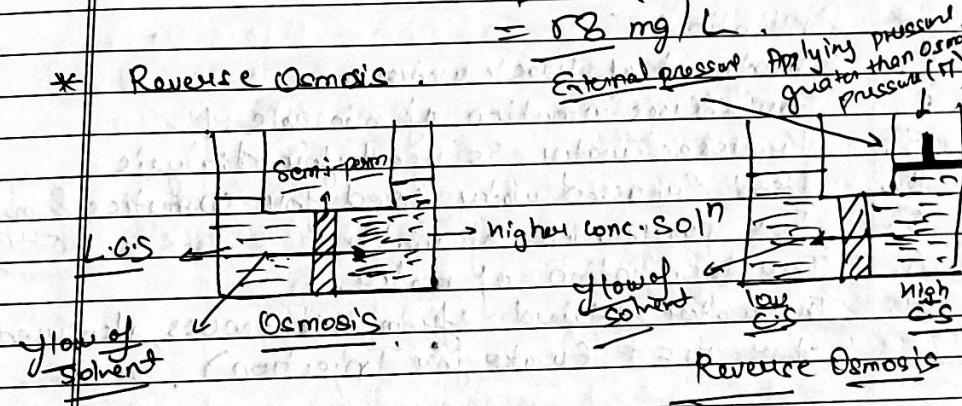 = 58 mg/L.
* Reverse Osmosis.
External pressure
Applying pressure
greater than Osmo
pressure (π)
Semi-perm
L.C.S
higher conc. solⁿ
flow of
solvent
Osmosis
flow of
solvent
low
C.S
high
C.S
Reverse Osmosis